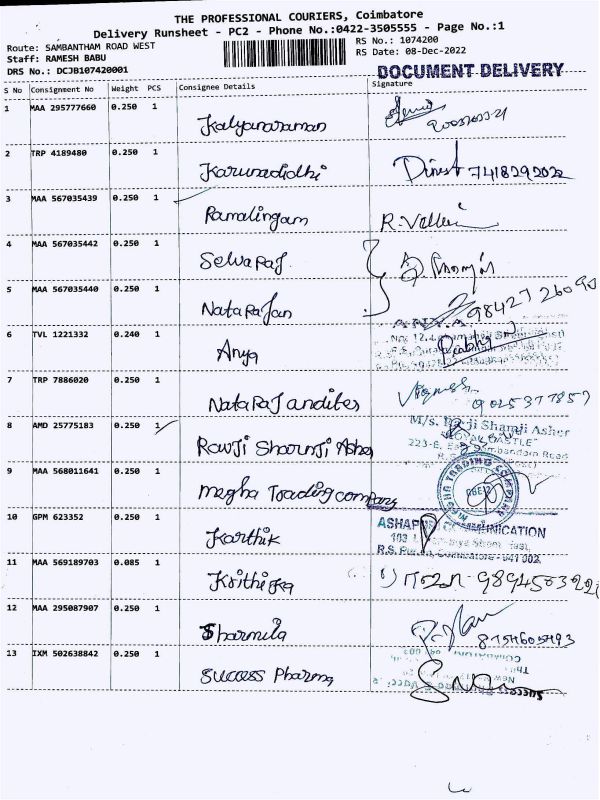 THE PROFESSIONAL COURIERS, Coimbatore
Delivery Runsheet - PC2 - Phone No.:0422-3505555 - Page No.:1
Route: SAMBANTHAM ROAD WEST
RS No.: 1074200
Staff: RAMESH BABU
RS Date: 08-Dec-2022
DRS No.: DCJB107420001
DOCUMENT DELIVERY
S No Consignment No Weight PCS Consignee Details Signature
1 MAA 295777660 0.250 1 Kalyanaraman
2 TRP 4189480 0.250 1 Karunadidhi 7418292022
3 MAA 567035439 0.250 1 Ramalingam
4 MAA 567035442 0.250 1 Selvaraj
5 MAA 567035440 0.250 1 Natarajan 98427 26090
6 TVL 1221332 0.240 1 Anya
7 TRP 7886020 0.250 1 Nataraj andites Vignesh 9025377857
8 AMD 25775183 0.250 1 Ravji Shamji Asher
M/s. Shamji Asher
9 MAA 568011641 0.250 1 Megha Trading company
MEGHA TRADING COMPANY
10 GPM 623352 0.250 1 Karthik
11 MAA 569189703 0.085 1 Krithika
12 MAA 295087907 0.250 1 Sharmila 8754605493
13 IXM 502638842 0.250 1 Success Pharma